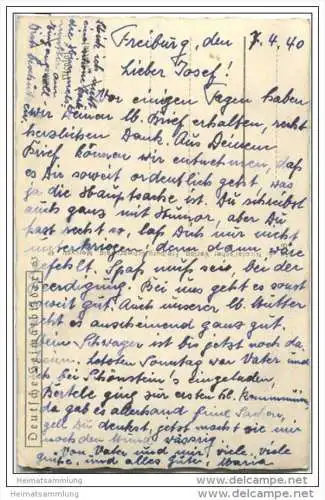 Freiburg, den 7.4.40
Lieber Josef!
Vor einigen Tagen haben
wir Deinen lb. Brief erhalten, recht
herzlichen Dank. Aus Deinem
Brief können wir entnehmen, daß
es Dir soweit ordentlich geht, was
ja die Hauptsache ist. Du schreibst
auch ganz mit Humor, aber Du
hast recht so, laß Dich nur nicht
unterkriegen; denn dann wäre
gefehlt. Spaß muß sein, bei der
Beerdigung. Bei uns geht es sonst
soweit gut. Auch unserer lb. Mutter
geht es anscheinend ganz gut.
Dein Schwager ist bis jetzt noch da
heim. Letzten Sonntag war Vater und
ich bei Schönstein's eingeladen,
ging zur ersten hl. Kommunion
da gab es allerhand feine Sachen,
gell Du denkst, jetzt macht sie mir
noch den Mund wässrig.
Von Vater und mir viele, viele
Grüße, und alles Gute, Maria
Deutsche Heimatbilder
Heimatsammlung
Heimatsammlung
www.delcampe.net